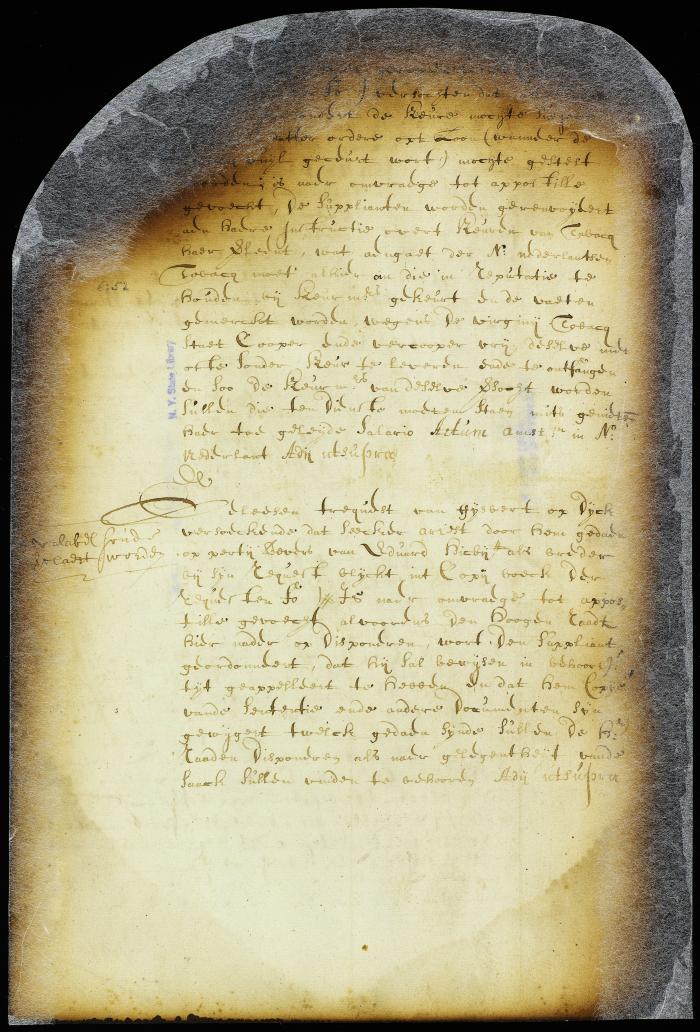 versochten dat
de Keure mochte
ordere opt Loon (wanneer de
gekeurt wort) mochte gestelt
worden, is naer omvrage tot appostille
gevoecht, De Supplianten worden gerenvoyeert
aen haere Instructie overt Keuren van Tobacq
haer Verleent, wat aengaet der Nr nederlantsen
Tobacq moet alhier om die in Reputatie te
houden, bij Keurmrs gekeurt ende de vaeten
gemerckt worden, wegens De virginij Tobacq
staet Cooper ende vercooper vrij, deselve met
ofte sonder Keur te leveren ende te ontfangen
en soo De Keurmrs van deselve Versocht worden
sullen die ten Dienste moeten staen mits genietende
haer toe geleyde Salario Actum Amstm in Nr
nederlant Adij utsupra
6:52
N. Y. State Library
Gelesen trequest van Gysbert op Dyck
versoeckende dat seecker arrest door hem gedaen
op partij Bevers van Eduard
bij sijn Request blyckt int Copij boeck Der
Requesten fo Is naer omvrage tot appos
tille gevoecht, alvoorens Den hoogen Raadt
hier nader op Disponeren, wort Den Suppliant
geordonneert, dat hij sal bewijsen in behoorl:
tijt geappelleert te hebben en dat hem Copie
vande Sententie ende andere Documenten sijn
geweygert twelck gedaen sijnde sullen De Hr
Raaden Disponeren als naer gelegentheyt vande
saack sullen vinden te behooren Adij utsupra
sijnde
worden